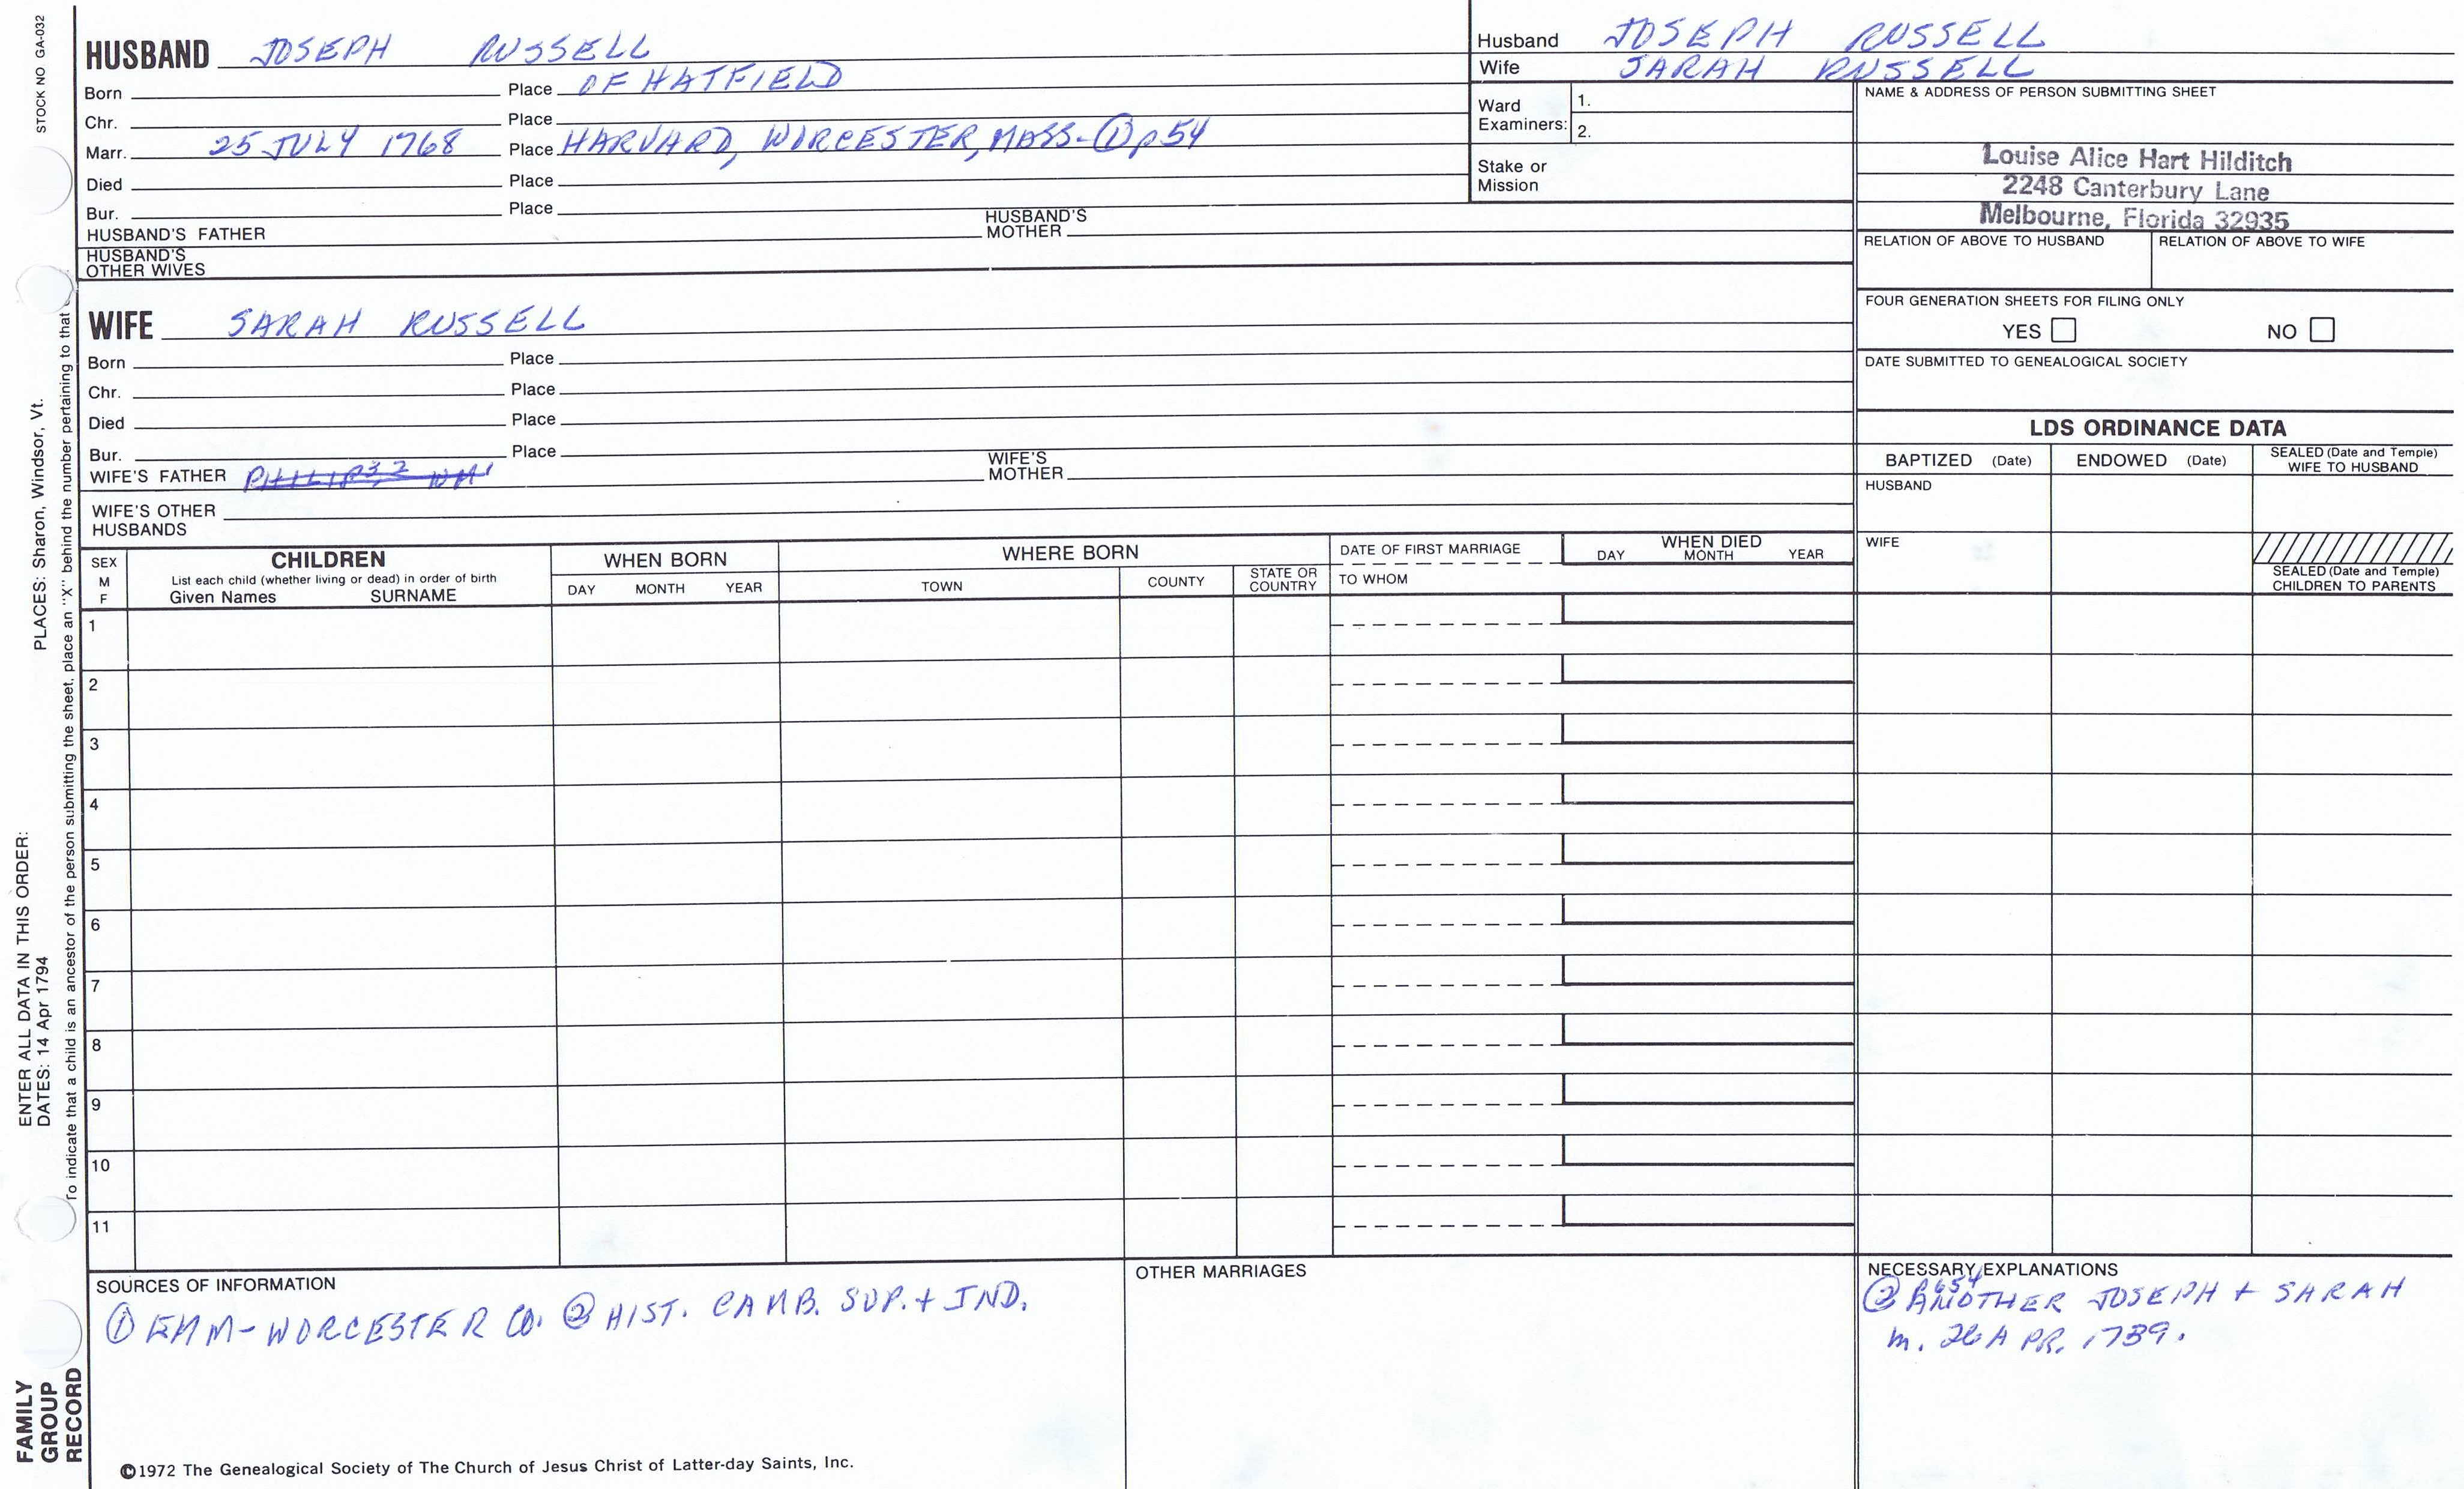 STOCK NO GA-032
HUSBAND JOSEPH RUSSELL
Born Place OF HATFIELD
Chr. Place
Marr. 25 JULY 1768 Place HARVARD, WORCESTER, MASS-① p54
Died Place
Bur. Place
HUSBAND'S FATHER HUSBAND'S MOTHER
HUSBAND'S OTHER WIVES
Husband JOSEPH RUSSELL
Wife SARAH RUSSELL
Ward Examiners: 1.
2.
Stake or Mission
NAME & ADDRESS OF PERSON SUBMITTING SHEET
Louise Alice Hart Hilditch
2248 Canterbury Lane
Melbourne, Florida 32935
RELATION OF ABOVE TO HUSBAND RELATION OF ABOVE TO WIFE
FOUR GENERATION SHEETS FOR FILING ONLY
YES NO
DATE SUBMITTED TO GENEALOGICAL SOCIETY
WIFE SARAH RUSSELL
Born Place
Chr. Place
Died Place
Bur. Place
WIFE'S FATHER WIFE'S MOTHER
WIFE'S OTHER HUSBANDS
LDS ORDINANCE DATA
BAPTIZED (Date) ENDOWED (Date) SEALED (Date and Temple) WIFE TO HUSBAND
HUSBAND
WIFE
SEALED (Date and Temple) CHILDREN TO PARENTS
SEX M F
CHILDREN
List each child (whether living or dead) in order of birth
Given Names SURNAME
WHEN BORN
DAY MONTH YEAR
WHERE BORN
TOWN COUNTY STATE OR COUNTRY
DATE OF FIRST MARRIAGE
TO WHOM
WHEN DIED
DAY MONTH YEAR
1
2
3
4
5
6
7
8
9
10
11
SOURCES OF INFORMATION
① EMM-WORCESTER CO. ② HIST. CAMB. SUP. + IND.
OTHER MARRIAGES
NECESSARY EXPLANATIONS
② ANOTHER JOSEPH + SARAH
m. 26 APR. 1739.
©1972 The Genealogical Society of The Church of Jesus Christ of Latter-day Saints, Inc.
ENTER ALL DATA IN THIS ORDER:
DATES: 14 Apr 1794 PLACES: Sharon, Windsor, Vt.
To indicate that a child is an ancestor of the person submitting the sheet, place an "X" behind the number pertaining to that
FAMILY
GROUP
RECORD